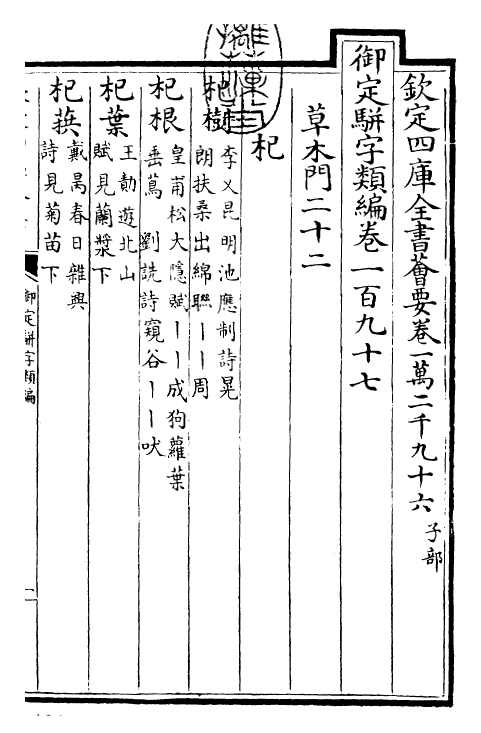 欽定四庫全書薈要卷一萬二千九十六 子部
御定騈字類編卷一百九十七
草木門二十二
杞
杞樹 李乂昆明池應制詩晃
朗扶桑出綿聯丨丨周
杞根 皇甫松大隱賦丨丨成狗蘿葉
垂蔦 劉詵詩窺谷丨丨吠
杞葉 王勣遊北山
賦見蘭漿下
杞䓹 戴昺春日雜興
詩見菊苗下
御定騈字類編
一